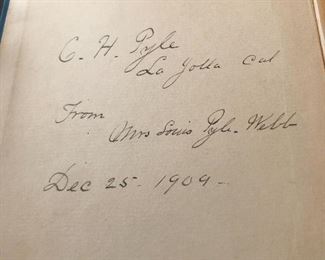 C. H. Pyle
La Jolla Cal
From
Mrs Louis Pyle-Webb
Dec 25- 1909-